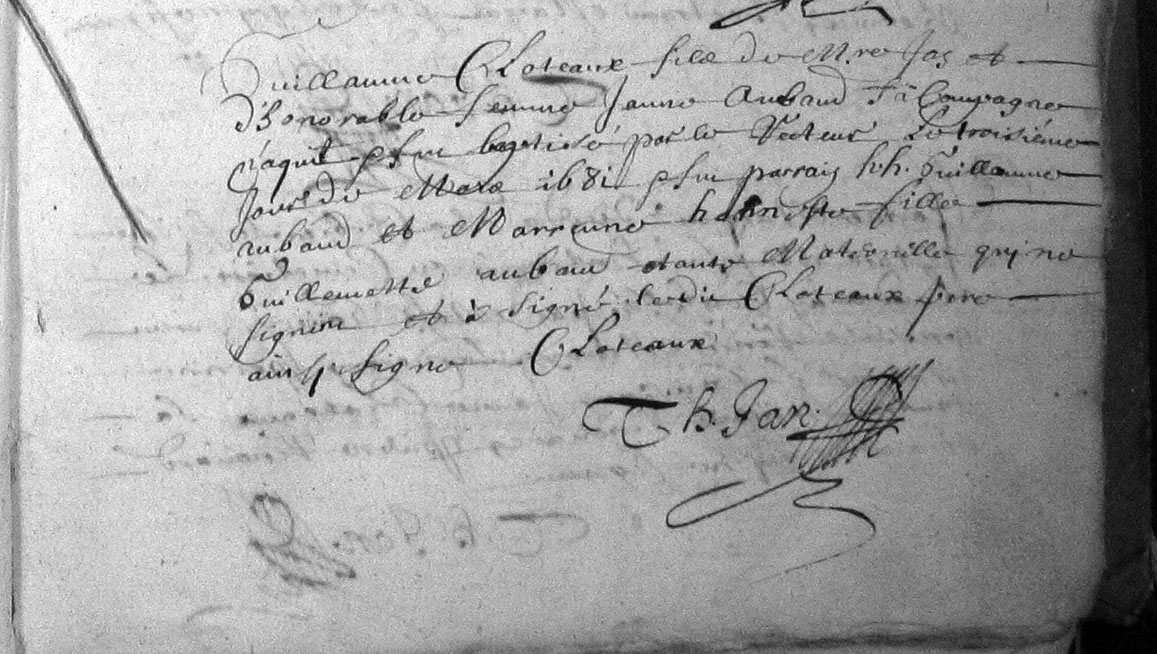 Guillaume Cloteaux fils de M.re Jas et
d'honorable femme Janne Aubaud sa Compagne
naquit & fut baptisé par le Recteur Le troisiéme
Jour de Mars 1681 & fut parrain h.h. Guillaume
aubaud et Marreine honneste fille
Guillemette aubaud tante Maternelle qui ne
signent et à signé ledit Cloteaux pere
ainsy signé Cloteaux
Th. Jan.